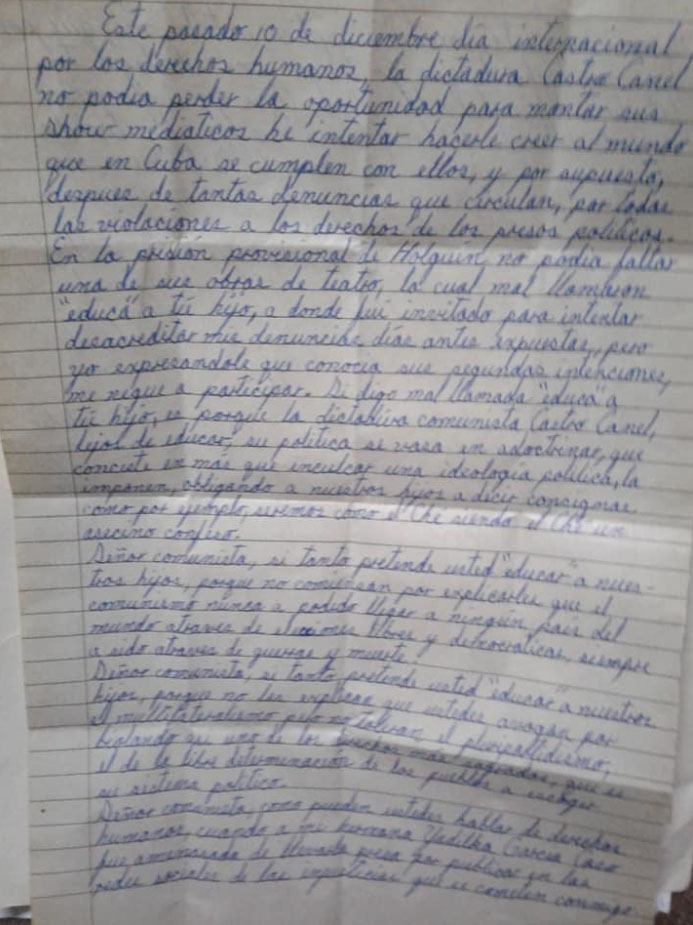 Este pasado 10 de diciembre día internacional
por los derechos humanos, la dictadura Castro Canel
no podia perder la oportunidad para montar sus
show mediaticos he intentar hacerle creer al mundo
que en Cuba se cumplen con ellos, y por supuesto,
despues de tantas denuncias que circulan, por todas
las violaciones a los derechos de los presos politicos.
En la prisión provisional de Holguín no podia faltar
una de sus obras de teatro, la cual mal llamaron
"educá" a tú hijo, a donde fui invitado para intentar
desacreditar mis denuncias días antes expuestas, pero
yo expresandole que conocia sus segundas intenciones,
me negue a participar. Si digo mal llamada "educá" a
tú hijo, es porque la dictadura comunista Castro Canel,
lejos de educar, su politica se vasa en adoctrinar, que
conciste en más que inculcar una ideología politica, la
imponen, obligando a nuestros hijos a decir consignas
como por ejemplo, seremos como el Ché siendo el Ché un
asecino confeso.
Señor comunista, si tanto pretende usted "educar" a nues-
tros hijos, porque no comiensan por explicarles que el
comunismo nunca a podido llegar a ningún país del
mundo atraves de elecciones libres y democraticas, siempre
a sido atraves de guerras y muerte.
Señor comunista, si tanto pretende usted "educar" a nuestros
hijos, porque no les explican que ustedes avogan por
el multilateralismo pero no toleran el pluripartidismo,
biolando asi uno de los derechos más sagrados, que es
el de la libre determinación de los pueblos a escoger
su sistema politico.
Señor comunista, como pueden ustedes hablar de derechos
humanos, cuando a mi hermana Yadilka García
fue amenasada de llevarla presa por publicar en las
redes sociales de las injusticias que se cometen conmigo.